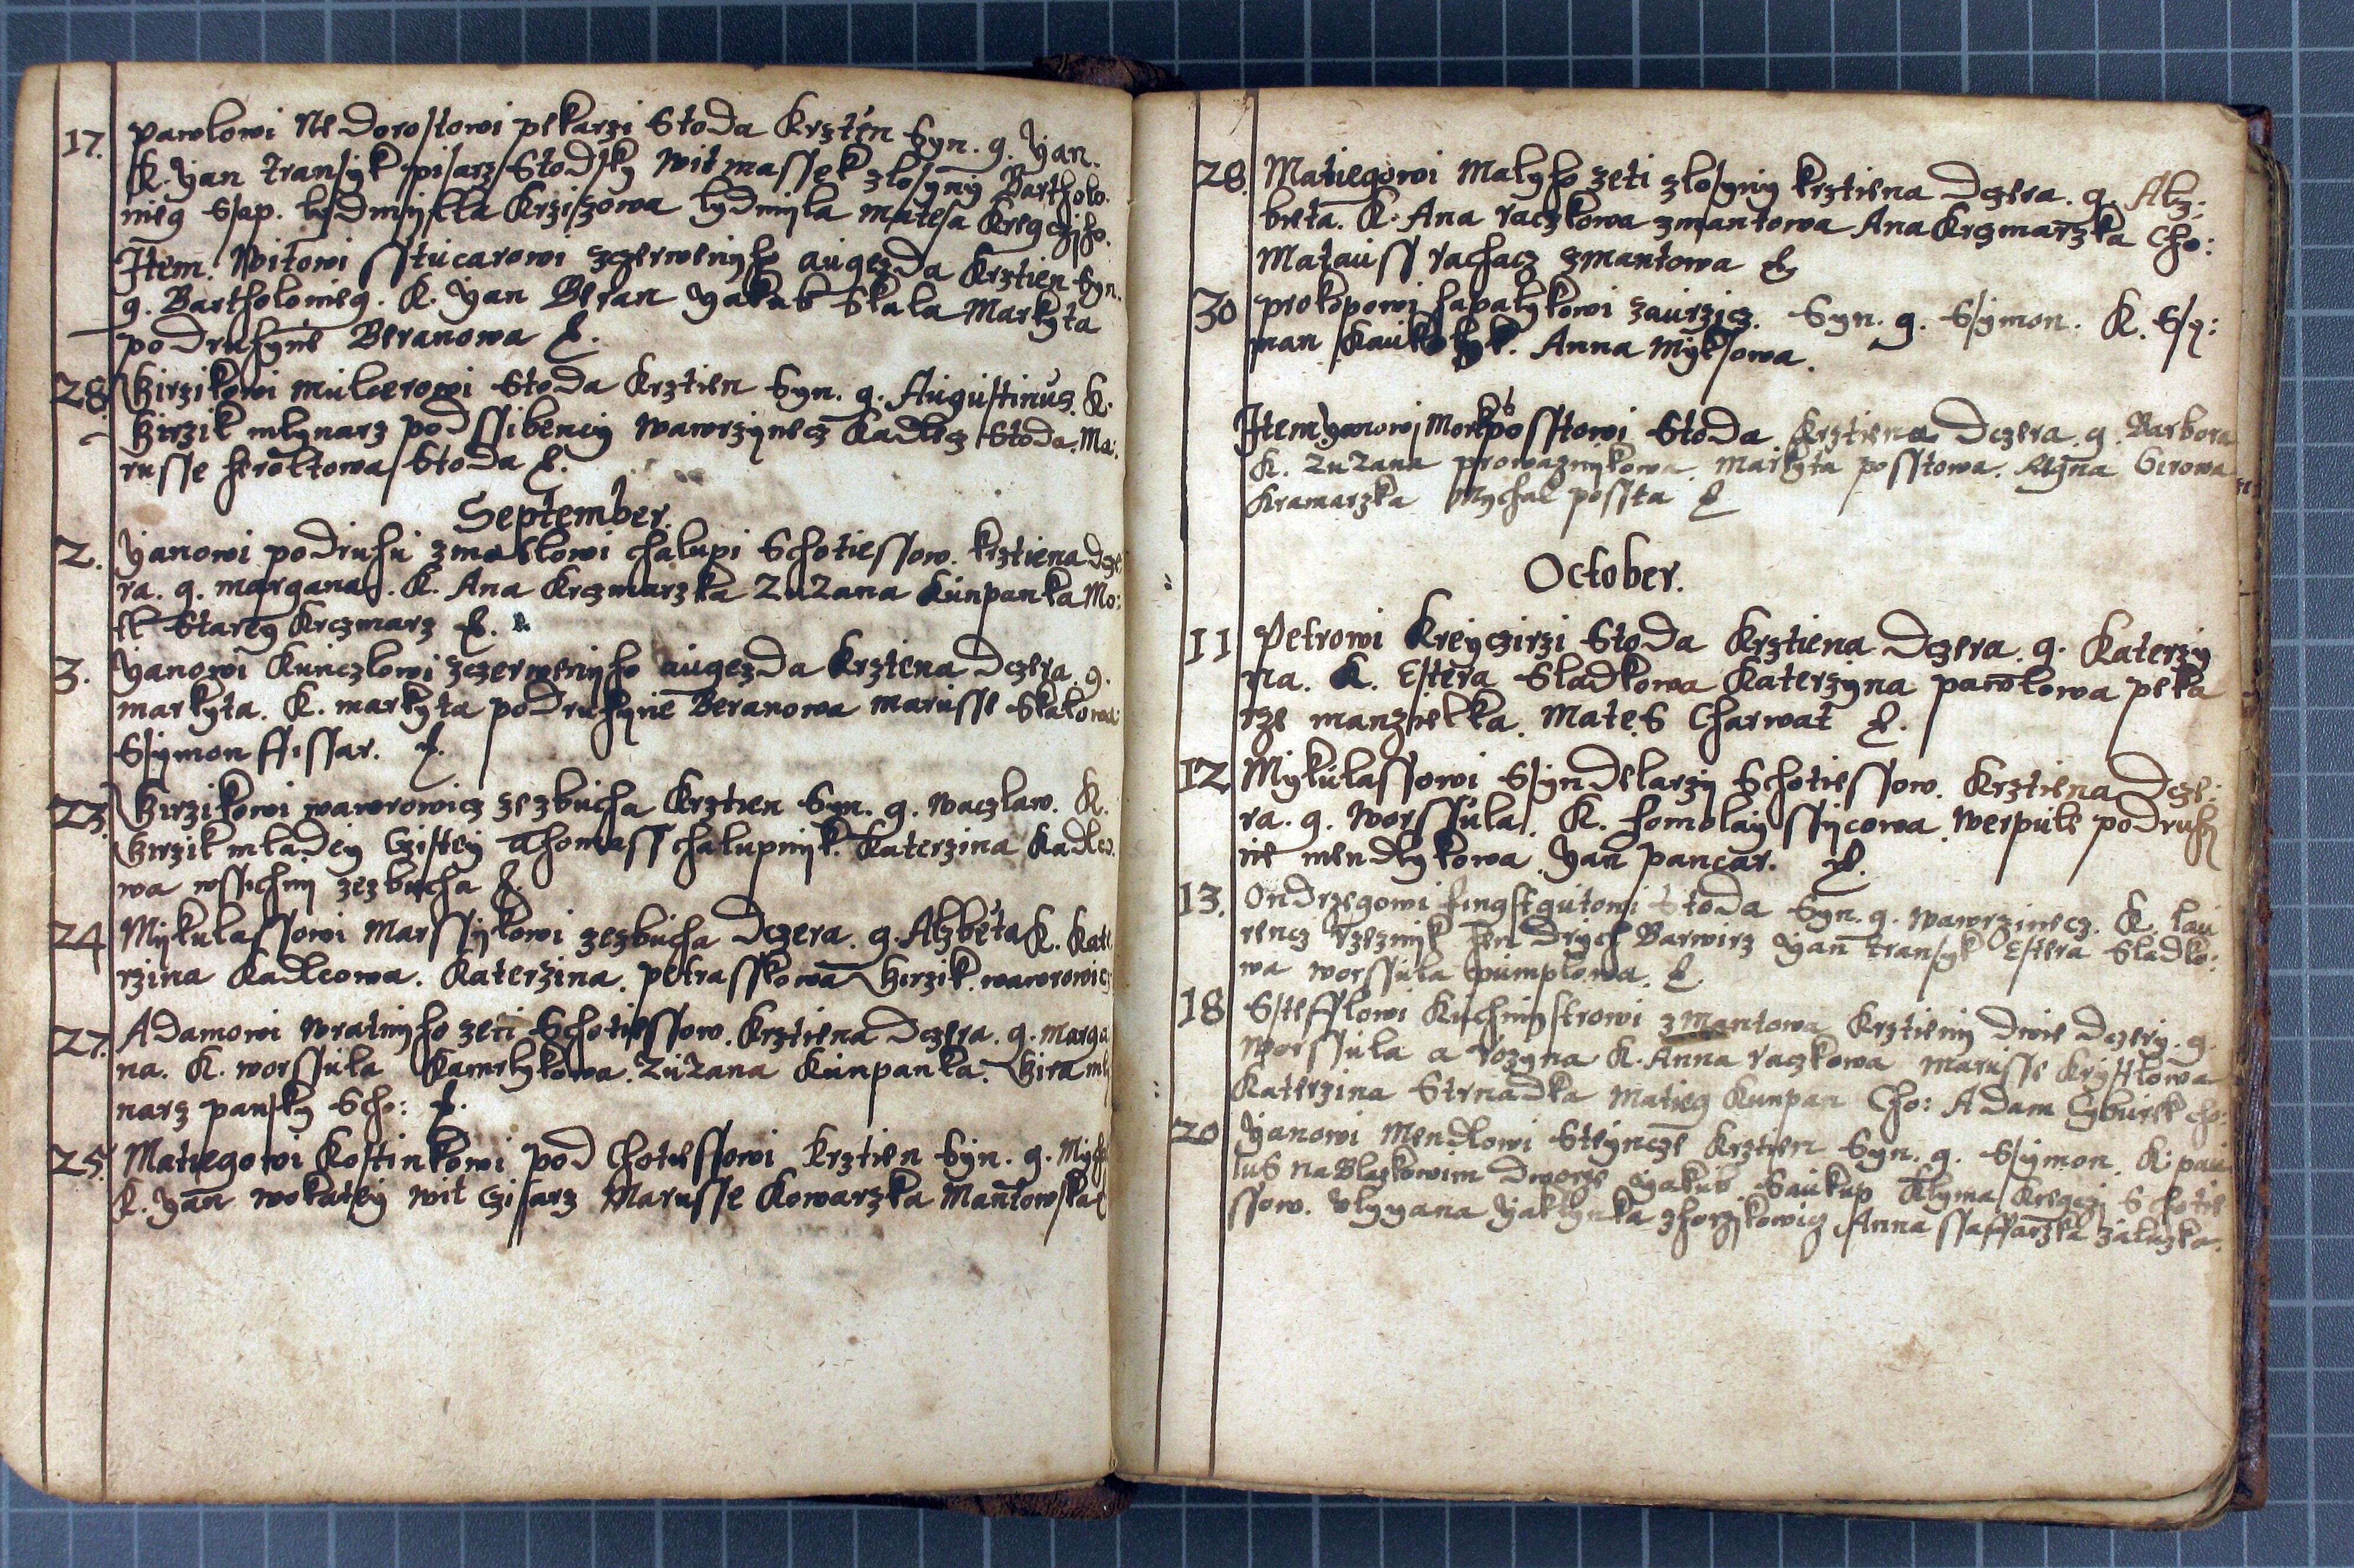 17. Pawlowi Nedorostowi pekarzi Stoda Krztěn Syn. g. Yan.
K. Yan Transyk pisarz Stodsky Wit Massek zlosyny Bartholo:
mieg Ssap. Lydmiylla Krziszowa Lydmyla Matesa Kregcziho.
Item. Witowi Sstucarowi zczerwenyho augezda Krztien Syn.
g. Bartholomieg. K. Yan Beran Yakub Skala Markyta
podruhynie Beranowa
28. Girzikowi Mulcerowi Stoda Krztien Syn. g. Augustinus. K.
Girzik mlynarz pod ssibency Wawrzynecz Kadlecz Stoda. Ma:
russe Stoda
September.
2. Yanowi podruhu zmatlowi chalupi Schotiessow. krztiena dcze
ra. g. margana. K. Ana Krczmarzka Zuzana Kunpanka Mo:
Starey Krczmarz
3. Yanowi Kunczlowi zczerwenyho augezda Krztena Dczera. g.
markyta. K. markyta podruhynie Beranowa marusse Skalowa
Ssymon ffissar.
23. Girzikowi wawrowicz zezbucha Krztien Syn. g. Waczlaw. K.
Girzik mladey Thomass chalupnyk. Katerzina Kadleo
wa wssichny zezbucha
24 Mykulassowi Marssykowi zezbucha Dczera. g. Alzběta K. Kate
rzina Kadleowa. Katerzina. petrasskowa Girzik. wawrowicz
27. Adamowi wratnyho zeti Schotiessow. Krztiena Dczera. g. Marga
na. K. worssula Zuzana Kunpanka. Gira mly
narz pansky Scho:
25. Matiegowi Kostinkowi pod Chotiessowi Krztien Syn. g. Mych
K. Yan wokatey wit Czisarz Marusse Kowarzka Mantowska
28. Matiegowi Malyho zeti zlosyny krztiena Dczera. g. Alz:
bieta. K. Ana raczkowa zmantowa Ana Krczmarzka Cho:
Matauss rachacz zmantowa
30 prokopowi hapatykowi zaurzicz. Syn. g. Ssymon. K. Ssy:
man Anna Myksowa.
Item Yanowi posstowi Stoda Krztiena Dczera. g. Barbora
K. Zuzana prowaznykowa. Markyta posstowa. Girowa
Kramarzka Mychal possta
October.
11 Petrowi Kreyczirzi Stoda Krztiena Dczera. g. Katerzy
na. K. Estera Sladkowa Katerzyna pawlowa peka
rze manzielka. Mates Charwat
12 Mykulassowi Ssyndelarzy Schotiessow. Krztiena Dcze:
ra. g. Worssula. K. homolay ssycowa. werpule podruhy
nie mendlykowa Yan pancar.
13. Ondrzegowi fingstgutowi Stoda Syn. g. Wawrzinecz. K. Lau
rencz Rzeznyk Hendrych Barwirz Yan Transyk Estera Sladko:
wa worssula pumplowa.
18 Stefflowi Kuchmystrowi zmantowa Krztieny dwie dczery. g.
Worssula a rozyna K. Anna raczkowa marusse Krystlowa
Katerzina Strnadka Matieg Kunpan Cho: Adam Cyburek cho:
20 Yanowi Mendlowi Steyncze Krztien Syn. g. Ssymon. K. pau
lus na Blaskowim dworze Yakub Saukup Klyma Kregczi Schotie
ssow. Ulyyana Yaklynka Anna ssaffarzka zaluzka.